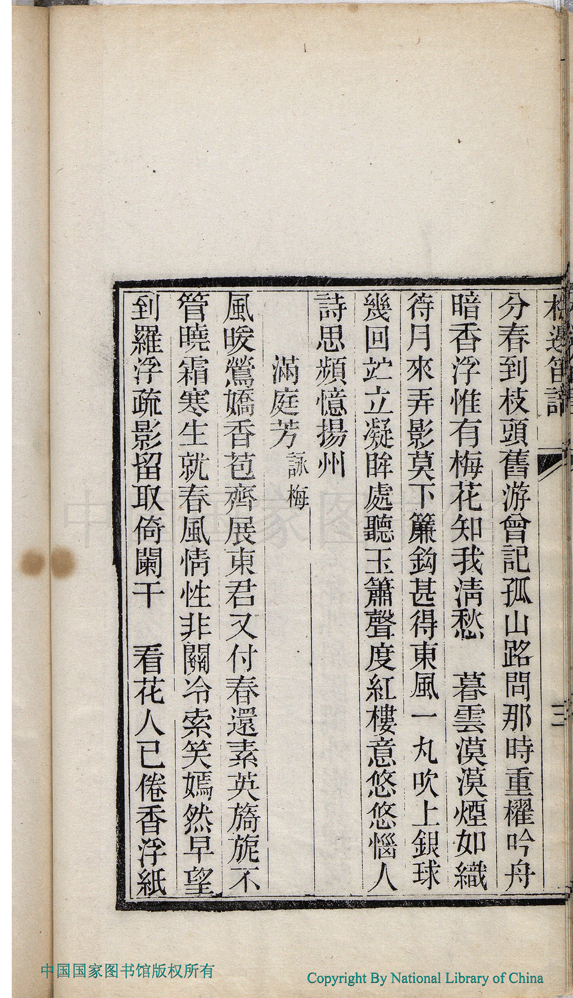 邊笛譜
三
分春到枝頭舊游曾記孤山路問那時重櫂吟舟
暗香浮惟有梅花知我淸愁　暮雲漠漠煙如織
待月來弄影莫下簾鈎甚得東風一丸吹上銀球
幾回竚立凝眸處聽玉簫聲度紅樓意悠悠惱人
詩思頻憶揚州
滿庭芳詠梅
風暖鶯嬌香苞齊展東君又付春還素英旖旎不
管曉霜寒生就春風情性非關冷索笑嫣然早望
到羅浮疏影留取倚闌干　看花人已倦香浮紙
中国国家图书馆版权所有
Copyright By National Library of China